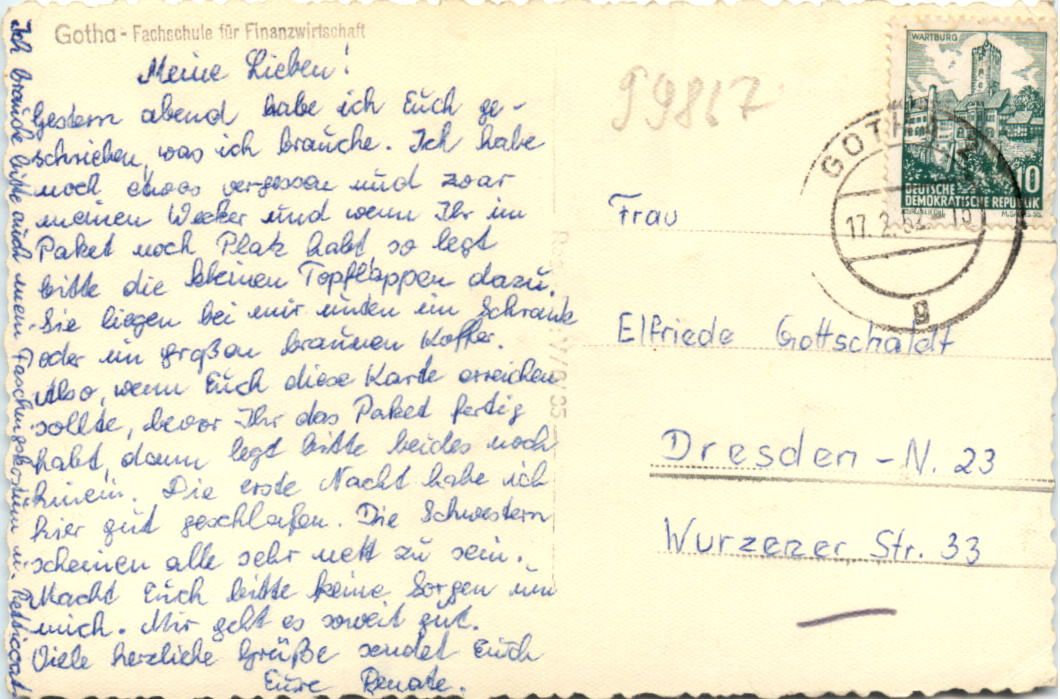 Gotha - Fachschule für Finanzwirtschaft
Meine Lieben!
Gestern abend habe ich Euch ge-
schrieben, was ich brauche. Ich habe
noch etwas vergessen und zwar
meinen Wecker und wenn Ihr im
Paket noch Platz habt so legt
bitte die kleinen Topflappen dazu.
Sie liegen bei mir unten im Schrank
oder im großen braunen Koffer.
Also, wenn Euch diese Karte erreichen
sollte, bevor Ihr das Paket fertig
habt, dann legt bitte beides noch
hinein. Die erste Nacht habe ich
hier gut geschlafen. Die Schwestern
scheinen alle sehr nett zu sein.
Macht Euch bitte keine Sorgen um
mich. Mir geht es soweit gut.
Viele herzliche Grüße sendet Euch
Eure Renate.
Ich brauche bitte auch mein Faschingskostüm u. Petticoat
99867
WARTBURG
10
DEUTSCHE
DEMOKRATISCHE REPUBLIK
GOTHA
17. 2. 62
g
Frau
Elfriede Gottschaldt
Dresden - N. 23
Wurzener Str. 33